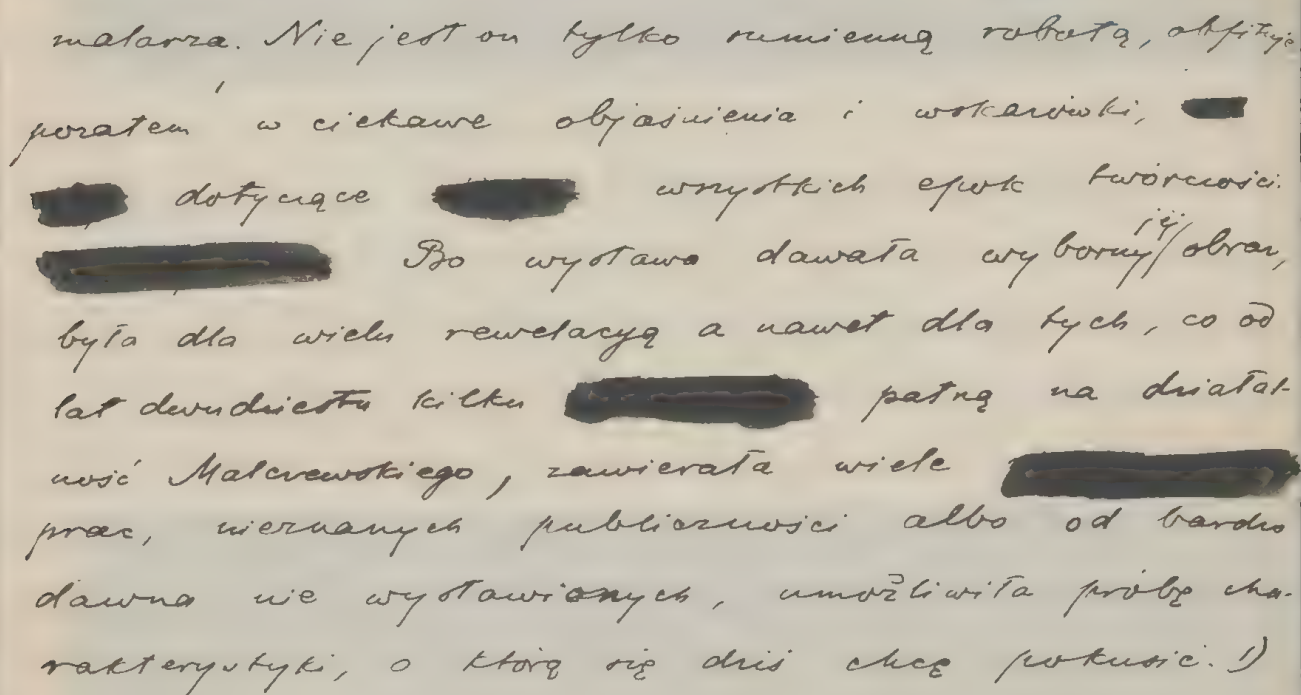 malarza. Nie jest on tylko sumienną robotą, obfituje
pozatem w ciekawe objaśnienia i wskazówki,
dotyczące wszystkich epok twórczości.
Bo wystawa dawała wyborny jéj obraz,
była dla wielu rewelacyą a nawet dla tych, co od
lat dwudziestu kilku patrzą na działal-
ność Malczewskiego, zawierała wiele
prac, nieznanych publiczności albo od bardzo
dawna nie wystawionych, umożliwiła próbę cha-
rakterystyki, o którą się dziś chcę pokusić. 1)